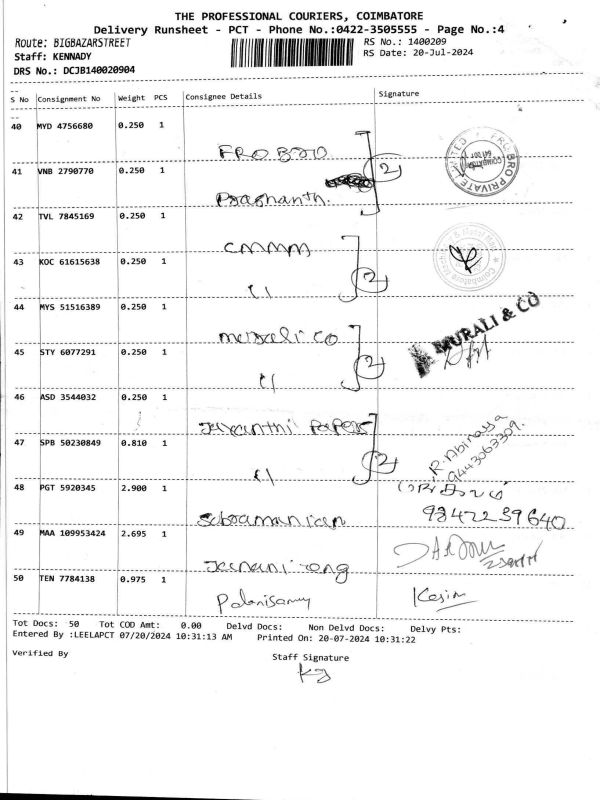 THE PROFESSIONAL COURIERS, COIMBATORE
Delivery Runsheet - PCT - Phone No.:0422-3505555 - Page No.:4
Route: BIGBAZARSTREET
RS No.: 1400209
Staff: KENNADY
RS Date: 20-Jul-2024
DRS No.: DCJB140020904
S No Consignment No Weight PCS Consignee Details Signature
40 MYD 4756680 0.250 1
FRO BRO
41 VNB 2790770 0.250 1
2
FRO BRO PRIVATE LIMITED
Prashanth.
42 TVL 7845169 0.250 1
CMMM
43 KOC 61615638 0.250 1
2
44 MYS 51516389 0.250 1
MURALI & CO
45 STY 6077291 0.250 1
2
46 ASD 3544032 0.250 1
Jayanthi Papers
47 SPB 50230849 0.810 1
2
R. Abinaya
9443063309.
48 PGT 5920345 2.900 1
Subramanian
9842239640
49 MAA 109953424 2.695 1
50 TEN 7784138 0.975 1
Palanisamy
Tot Docs: 50 Tot COD Amt: 0.00 Delvd Docs: Non Delvd Docs: Delvy Pts:
Entered By :LEELAPCT 07/20/2024 10:31:13 AM Printed On: 20-07-2024 10:31:22
Verified By
Staff Signature